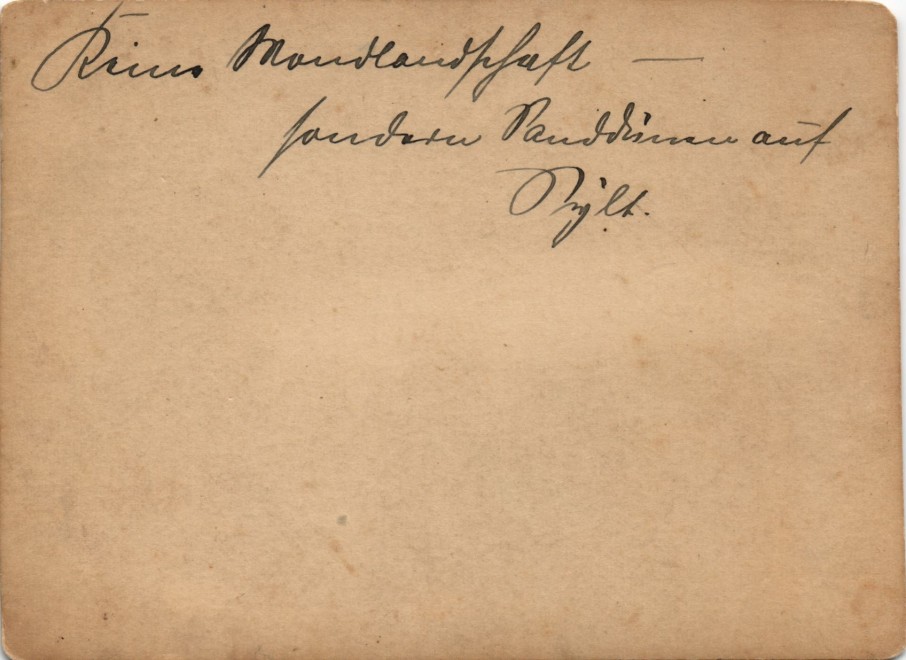 Keine Mondlandschaft —
sondern Sanddünen auf
Sylt.